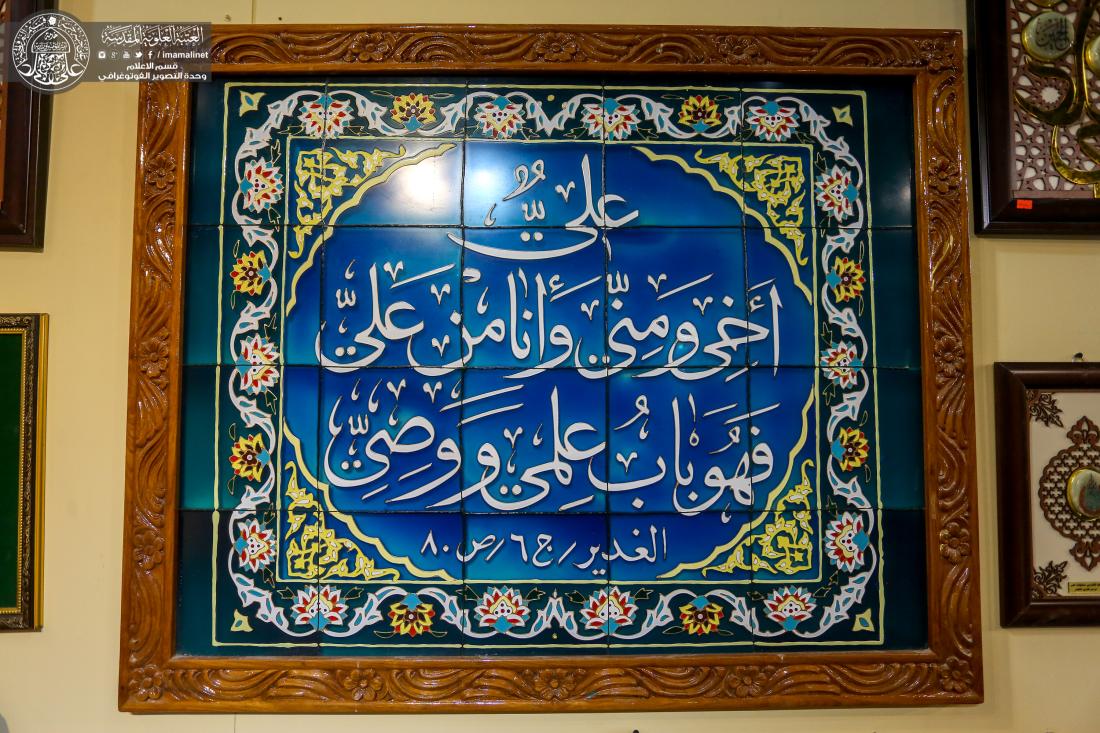 العتبة العلوية المقدسة
/ imamalinet
قسم الاعلام
وحدة التصوير الفوتوغرافي
عليٌّ
أخي ومنّي وأنا منْ عليّ
فهُوَ بابُ علمي وَوَصِيّ
الغدير / ج ٦ / ص ٨٠